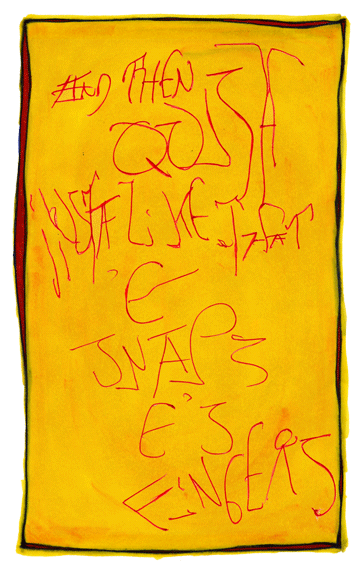 AND THEN
QUIST
'JUST LIKE THAT
'E
SNAPS
E'S
FINGERS